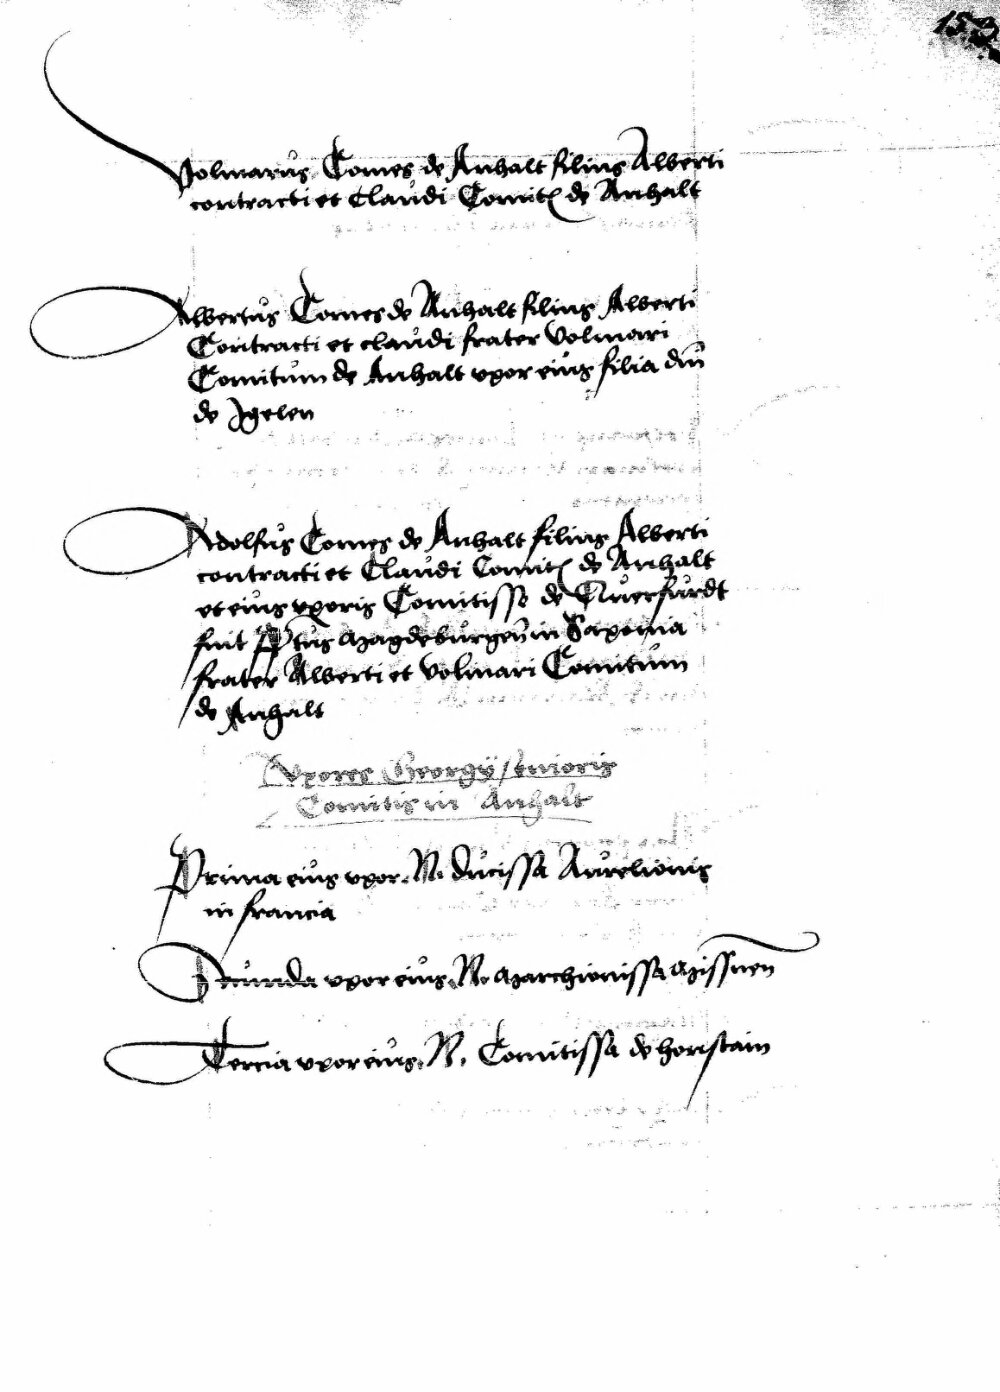 Volmarus Comes de Anhalt filius Alberti
contracti et Claudi Comit de Anhalt
Albertus Comes de Anhalt filius Alberti
Contracti et claudi frater Volmari
Comitum de Anhalt uxor eius filia dni
de Igelen
Adolfus Comes de Anhalt filius Alberti
contracti et Claudi Comit de Anhalt
et eius uxoris Comitisse de Querfurdt
fuit Pptus Magdeburgen in Saxonia
frater Alberti et Volmari Comitum
de Anhalt
Uxores Georgÿ senioris
Comitis in Anhalt
Prima eius uxor. N. ducissa Aurelionis
in francia
uxor eius. N. Marchionissa Missnen
Tercia uxor eius. N. Comitissa de honstain